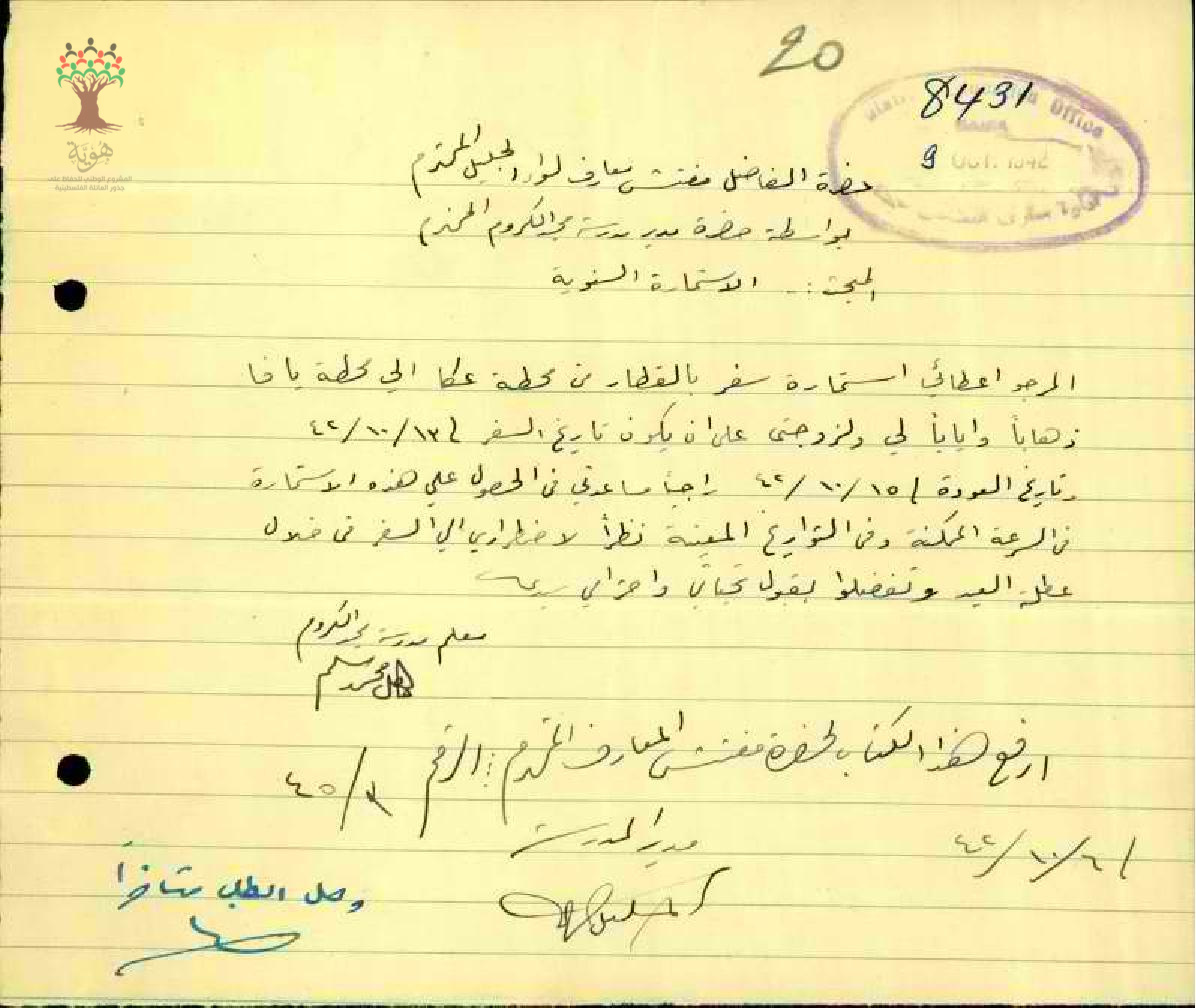 هوية
المشروع الوطني للحفاظ على
جذور العائلة الفلسطينية
20
8431
Office
9 OCT. 1942
حضرة الفاضل مفتش معارف لواء الجليل المحترم
بواسطة حضرة مدير مدرسة مجد الكروم المحترم
المبحث :- الاستمارة السنوية
المرجو اعطائي استمارة سفر بالقطار من محطة عكا الى محطة يافا
ذهاباً واياباً لي ولزوجتي على ان يكون تاريخ السفر في ١٣/١٠/٤٢
وتاريخ العودة في ١٥/١٠/٤٢ راجياً مساعدتي في الحصول على هذه الاستمارة
في السرعة الممكنة وفي التواريخ المعينة نظراً لاضطراري الى السفر في خلال
عطلة العيد وتفضلوا بقبول تحياتي واحترامي سيدي
معلم مدرسة مجد الكروم
محمد سليم
ارفع هذا الكتاب لحضرة مفتش المعارف المحترم : الرقم ٣/٤٥
مدير المدرسة
في ٦/١٠/٤٢
وصل الطلب متاخراً